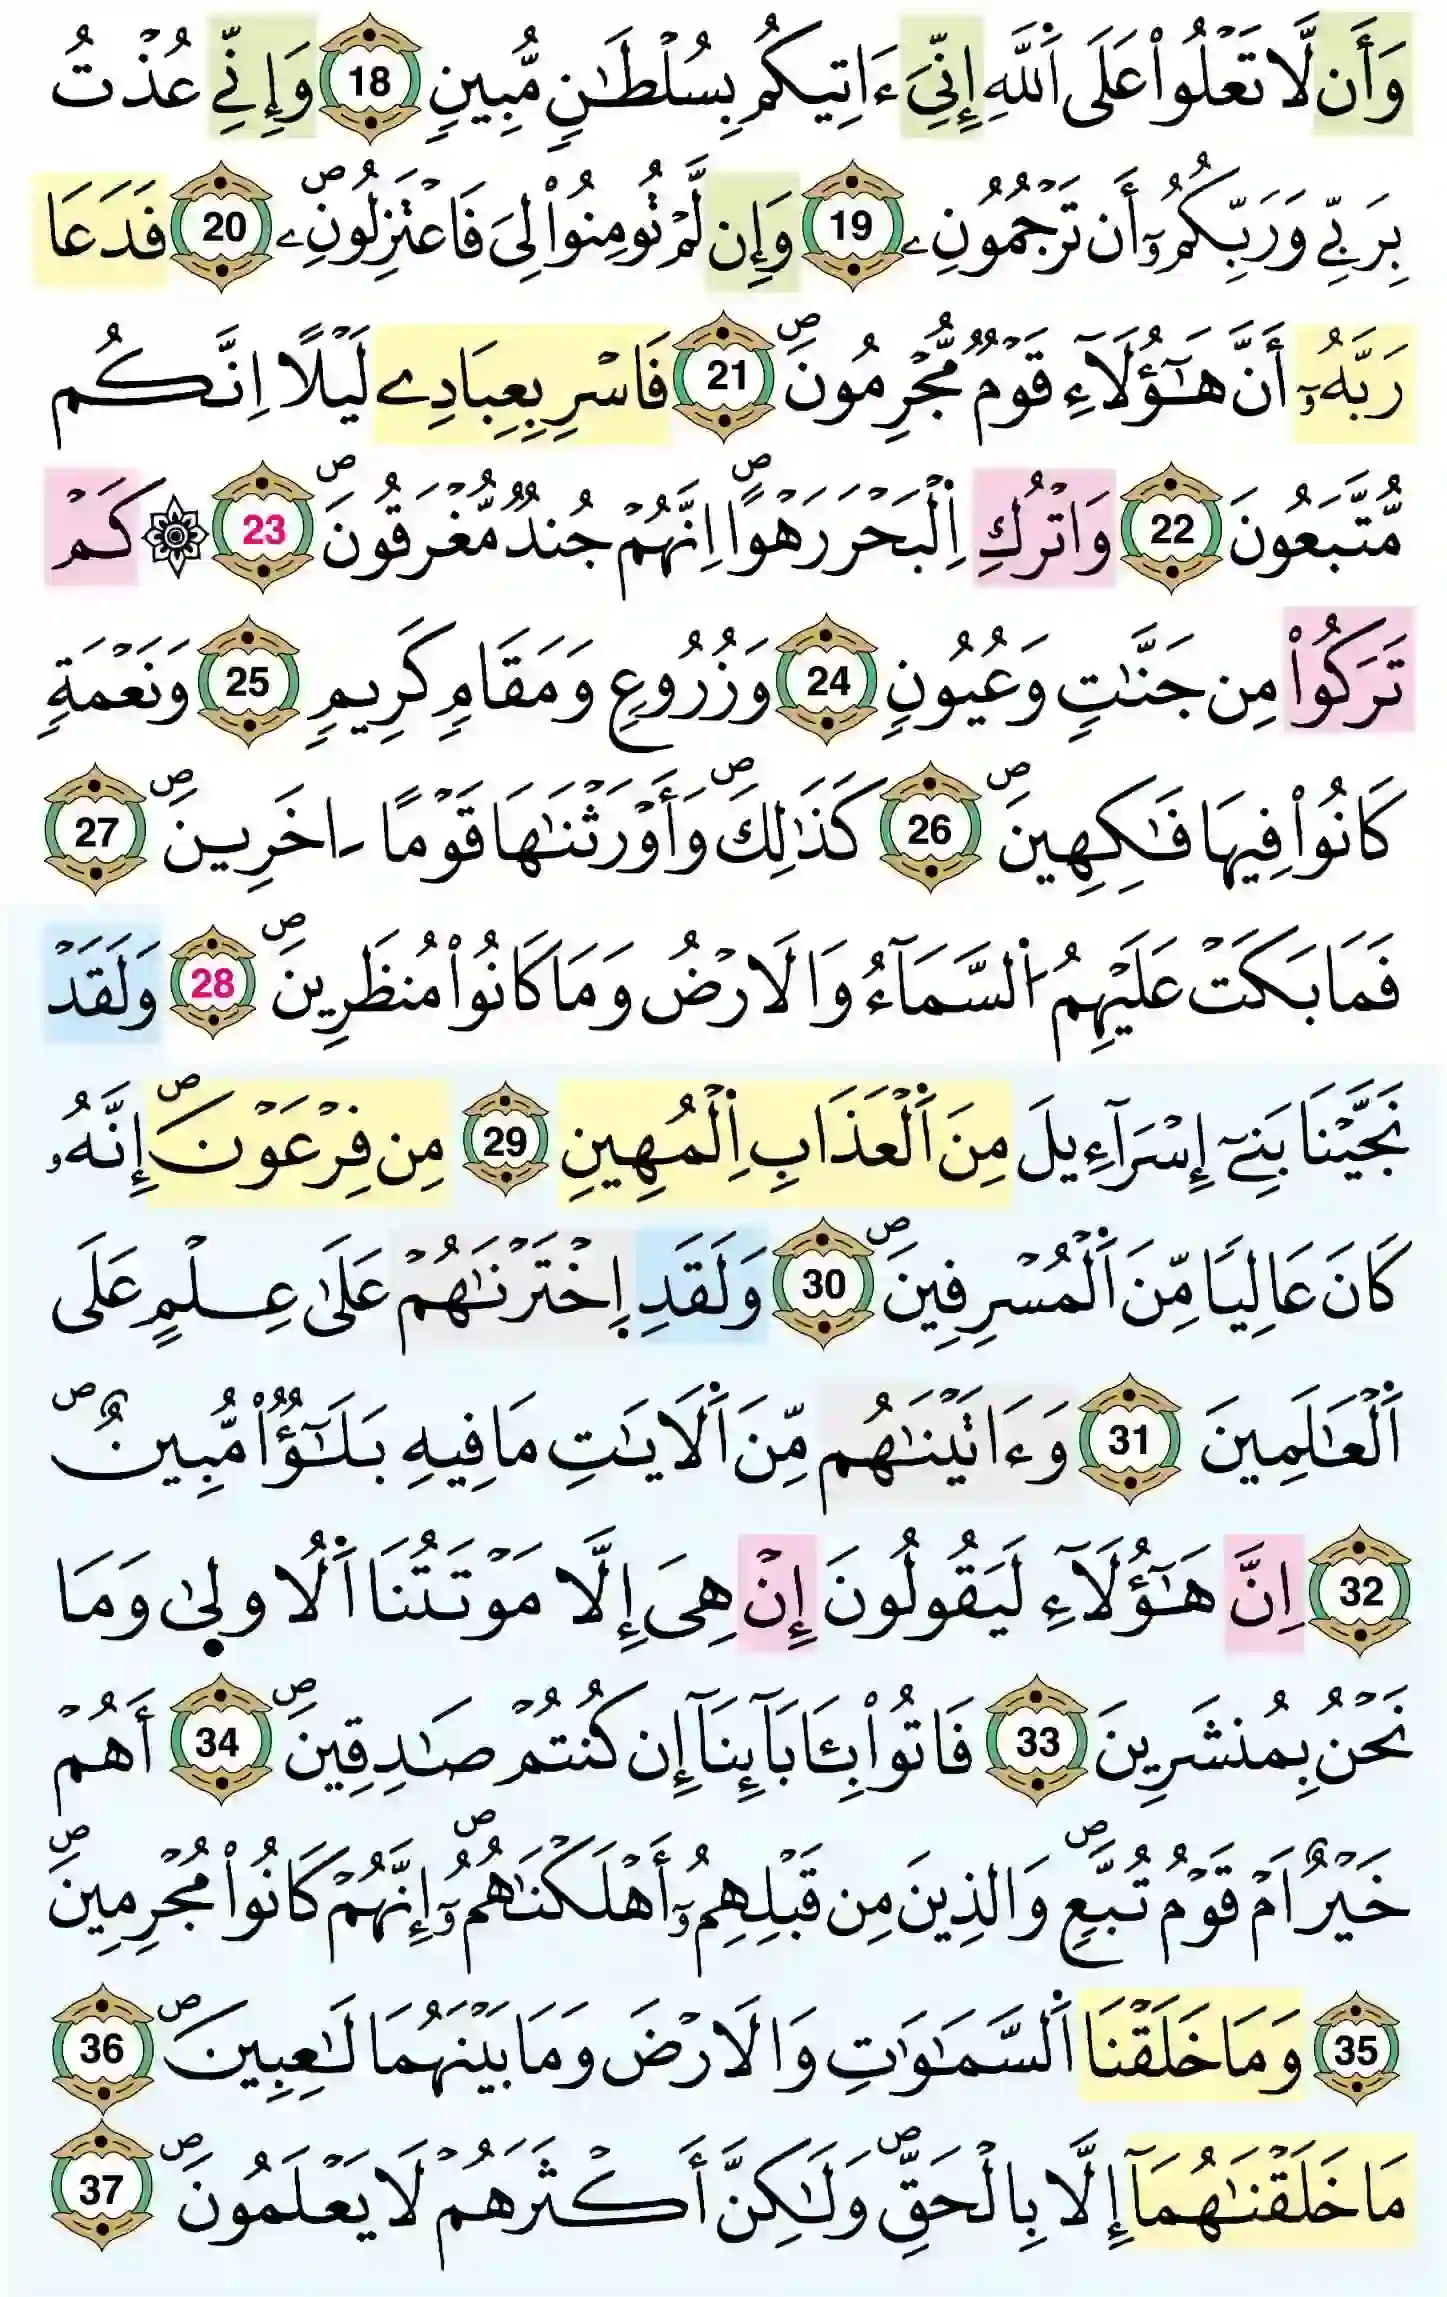 وَأَن لَّا تَعْلُواْ عَلَى اَ۬للَّهِ إِنِّيَ ءَاتِيكُم بِسُلْطَٰنٖ مُّبِينٖ 18 وَإِنِّے عُذْتُ
بِرَبِّے وَرَبِّكُمُۥٓ أَن تَرْجُمُونِۦ 19 وَإِن لَّمْ تُومِنُواْ لِيَ فَاعْتَزِلُونِۦۖ 20 فَدَعَا
رَبَّهُۥٓ أَنَّ هَٰٓؤُلَآءِ قَوْمٞ مُّجْرِمُونَۖ 21 فَاسْرِ بِعِبَادِے لَيْلًا اِنَّكُم
مُّتَّبَعُونَ 22 وَاتْرُكِ اِ۬لْبَحْرَ رَهْواًۖ اِنَّهُمْ جُندٞ مُّغْرَقُونَۖ 23 ۞ كَمْ
تَرَكُواْ مِن جَنَّٰتٖ وَعُيُونٖ 24 وَزُرُوعٖ وَمَقَامٖ كَرِيمٖ 25 وَنَعْمَةٖ
كَانُواْ فِيهَا فَٰكِهِينَۖ 26 كَذَٰلِكَۖ وَأَوْرَثْنَٰهَا قَوْماً ـاخَرِينَۖ 27
فَمَا بَكَتْ عَلَيْهِمُ اُ۬لسَّمَآءُ وَالَارْضُ وَمَا كَانُواْ مُنظَرِينَۖ 28 وَلَقَدْ
نَجَّيْنَا بَنِےٓ إِسْرَآءِيلَ مِنَ اَ۬لْعَذَابِ اِ۬لْمُهِينِ 29 مِن فِرْعَوْنَۖ إِنَّهُۥ
كَانَ عَالِياٗ مِّنَ اَ۬لْمُسْرِفِينَۖ 30 وَلَقَدِ اِ۪خْتَرْنَٰهُمْ عَلَىٰ عِلْمٍ عَلَى
اَ۬لْعَٰلَمِينَ 31 وَءَاتَيْنَٰهُم مِّنَ اَ۬لَايَٰتِ مَا فِيهِ بَلَٰٓؤٞاْ مُّبِينٌۖ
32 اِنَّ هَٰٓؤُلَآءِ لَيَقُولُونَ إِنْ هِيَ إِلَّا مَوْتَتُنَا اَ۬لُاول۪يٰ وَمَا
نَحْنُ بِمُنشَرِينَ 33 فَاتُواْ بِـَٔابَآئِنَآ إِن كُنتُمْ صَٰدِقِينَۖ 34 أَهُمْ
خَيْرٌ اَمْ قَوْمُ تُبَّعٖۖ وَالذِينَ مِن قَبْلِهِمُۥٓ أَهْلَكْنَٰهُمُۥٓۖ إِنَّهُمْ كَانُواْ مُجْرِمِينَۖ
35 وَمَا خَلَقْنَا اَ۬لسَّمَٰوَٰتِ وَالَارْضَ وَمَا بَيْنَهُمَا لَٰعِبِينَۖ 36
مَا خَلَقْنَٰهُمَآ إِلَّا بِالْحَقِّۖ وَلَٰكِنَّ أَكْثَرَهُمْ لَا يَعْلَمُونَۖ 37